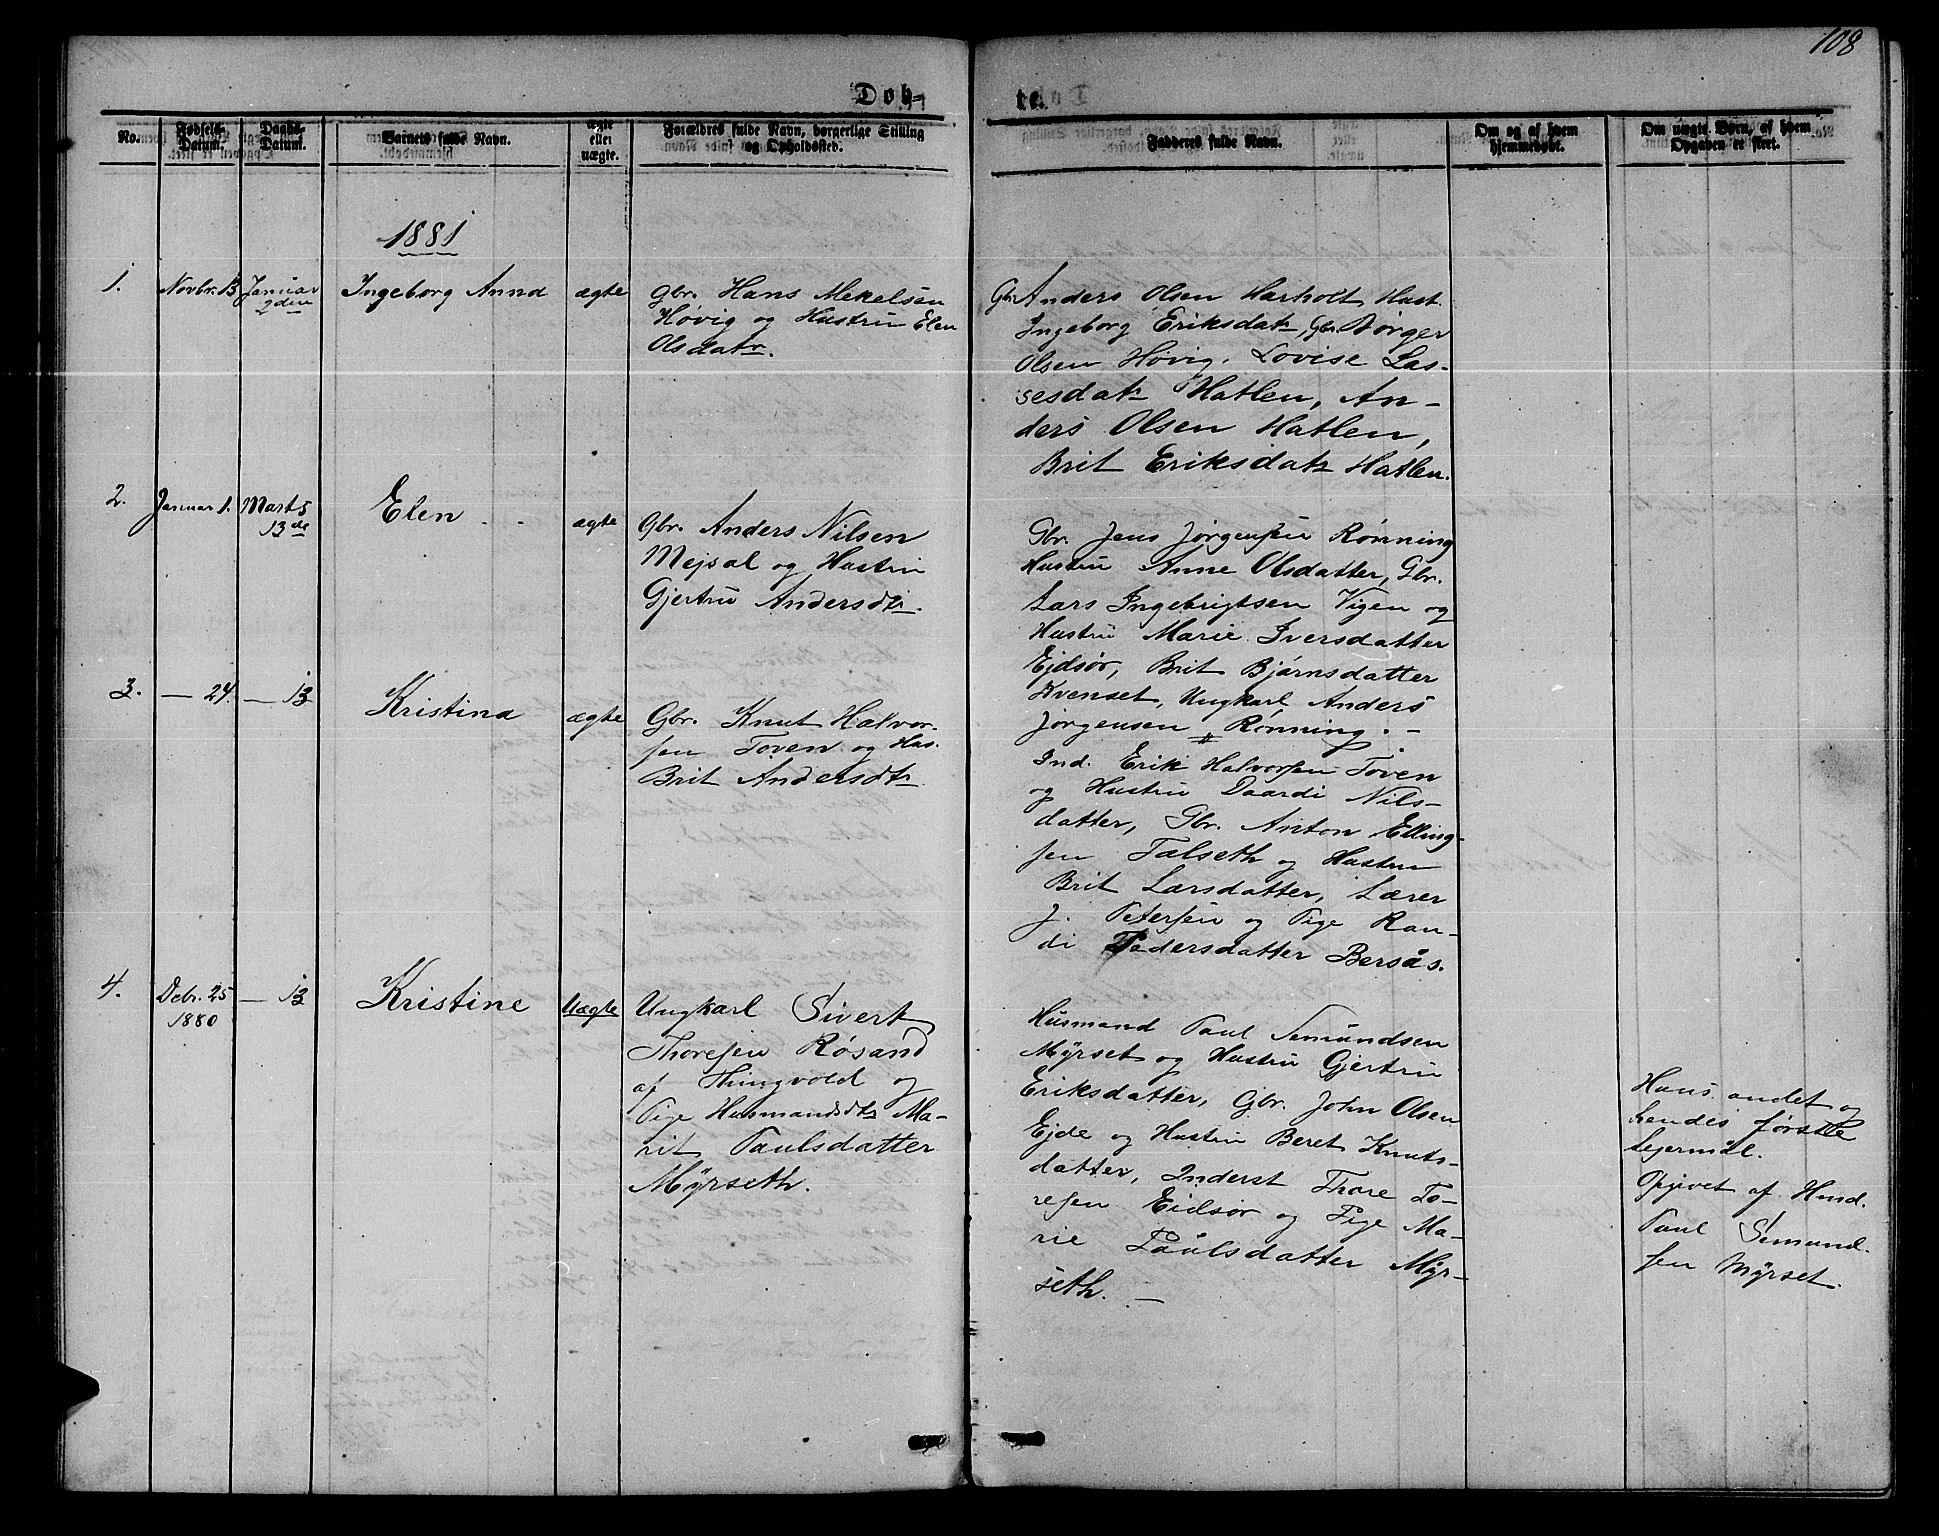 108
Døb-
te.
No.
Fødsels-
Datum.
Daabs-
Datum.
Barnets fulde Navn.
ægte
eller
uægte.
Forældres fulde Navn, borgerlige Stilling
og Opholdssted.
Fadderes fulde Navn.
Om og af hvem
hjemmedøbt.
Om uægte Børn, af hvem
Opgaven er skeet.
1881
1.
Novbr. 13
Januar
2den
Ingeborg Anna
ægte
Gbr. Hans Mekelsen
Høvig og Hustru Elen
Olsdatr.
Gbr. Anders Olsen Harholt Hust.
Ingeborg Eriksdatr, Gbr. Børger
Olsen Høvig. Lovise Las-
sesdatr Hatlen, An-
ders Olsen Hatlen,
Brit Eriksdatr Hatlen.
2.
Januar 1.
Marts
13de
Elen
ægte
Gbr. Anders Nilsen
Mejsal og Hustru
Gjertru Andersdtr.
Gbr. Jens Jørgensen Rønning
Hustru Anne Olsdatter, Gbr.
Lars Ingebrigtsen Vigen og
Hustru Marie Iversdatter
Ejdsør, Brit Bjørnsdatter
Kvenset, Ungkarl Anders
Jørgensen Rønning. -
3.
— 24.
— 13
Kristina
ægte
Gbr. Knut Halvor-
sen Toven og Hus.
Brit Andersdtr.
Ind. Erik Halvorsen Toven
og Hustru Daardi Nils-
datter, Gbr. Anton Elling-
sen Talseth og Hustru
Brit Larsdatter, Lærer
J. Petersen og Pige Ran-
di Pedersdatter Bersås.
4.
Debr. 25
1880
— 13
Kristine
Uægte
Ungkarl Sivert
Thoresen Røsand
af Thingvold og
Pige Husmandsdtr Ma-
rit Paulsdatter
Myrseth.
Husmand Paul Semundsen
Myrset og Hustru Gjertru
Eriksdatter, Gbr. John Olsen
Ejde og Hustru Beret Knuts-
datter, Inderst Thore To-
resen Eidsør og Pige Ma-
rie Paulsdatter Myr-
seth. —
Hans andet og
hendes første
Lejermål.
Opgivet af Husd.
Paul Semund-
sen Myrset.